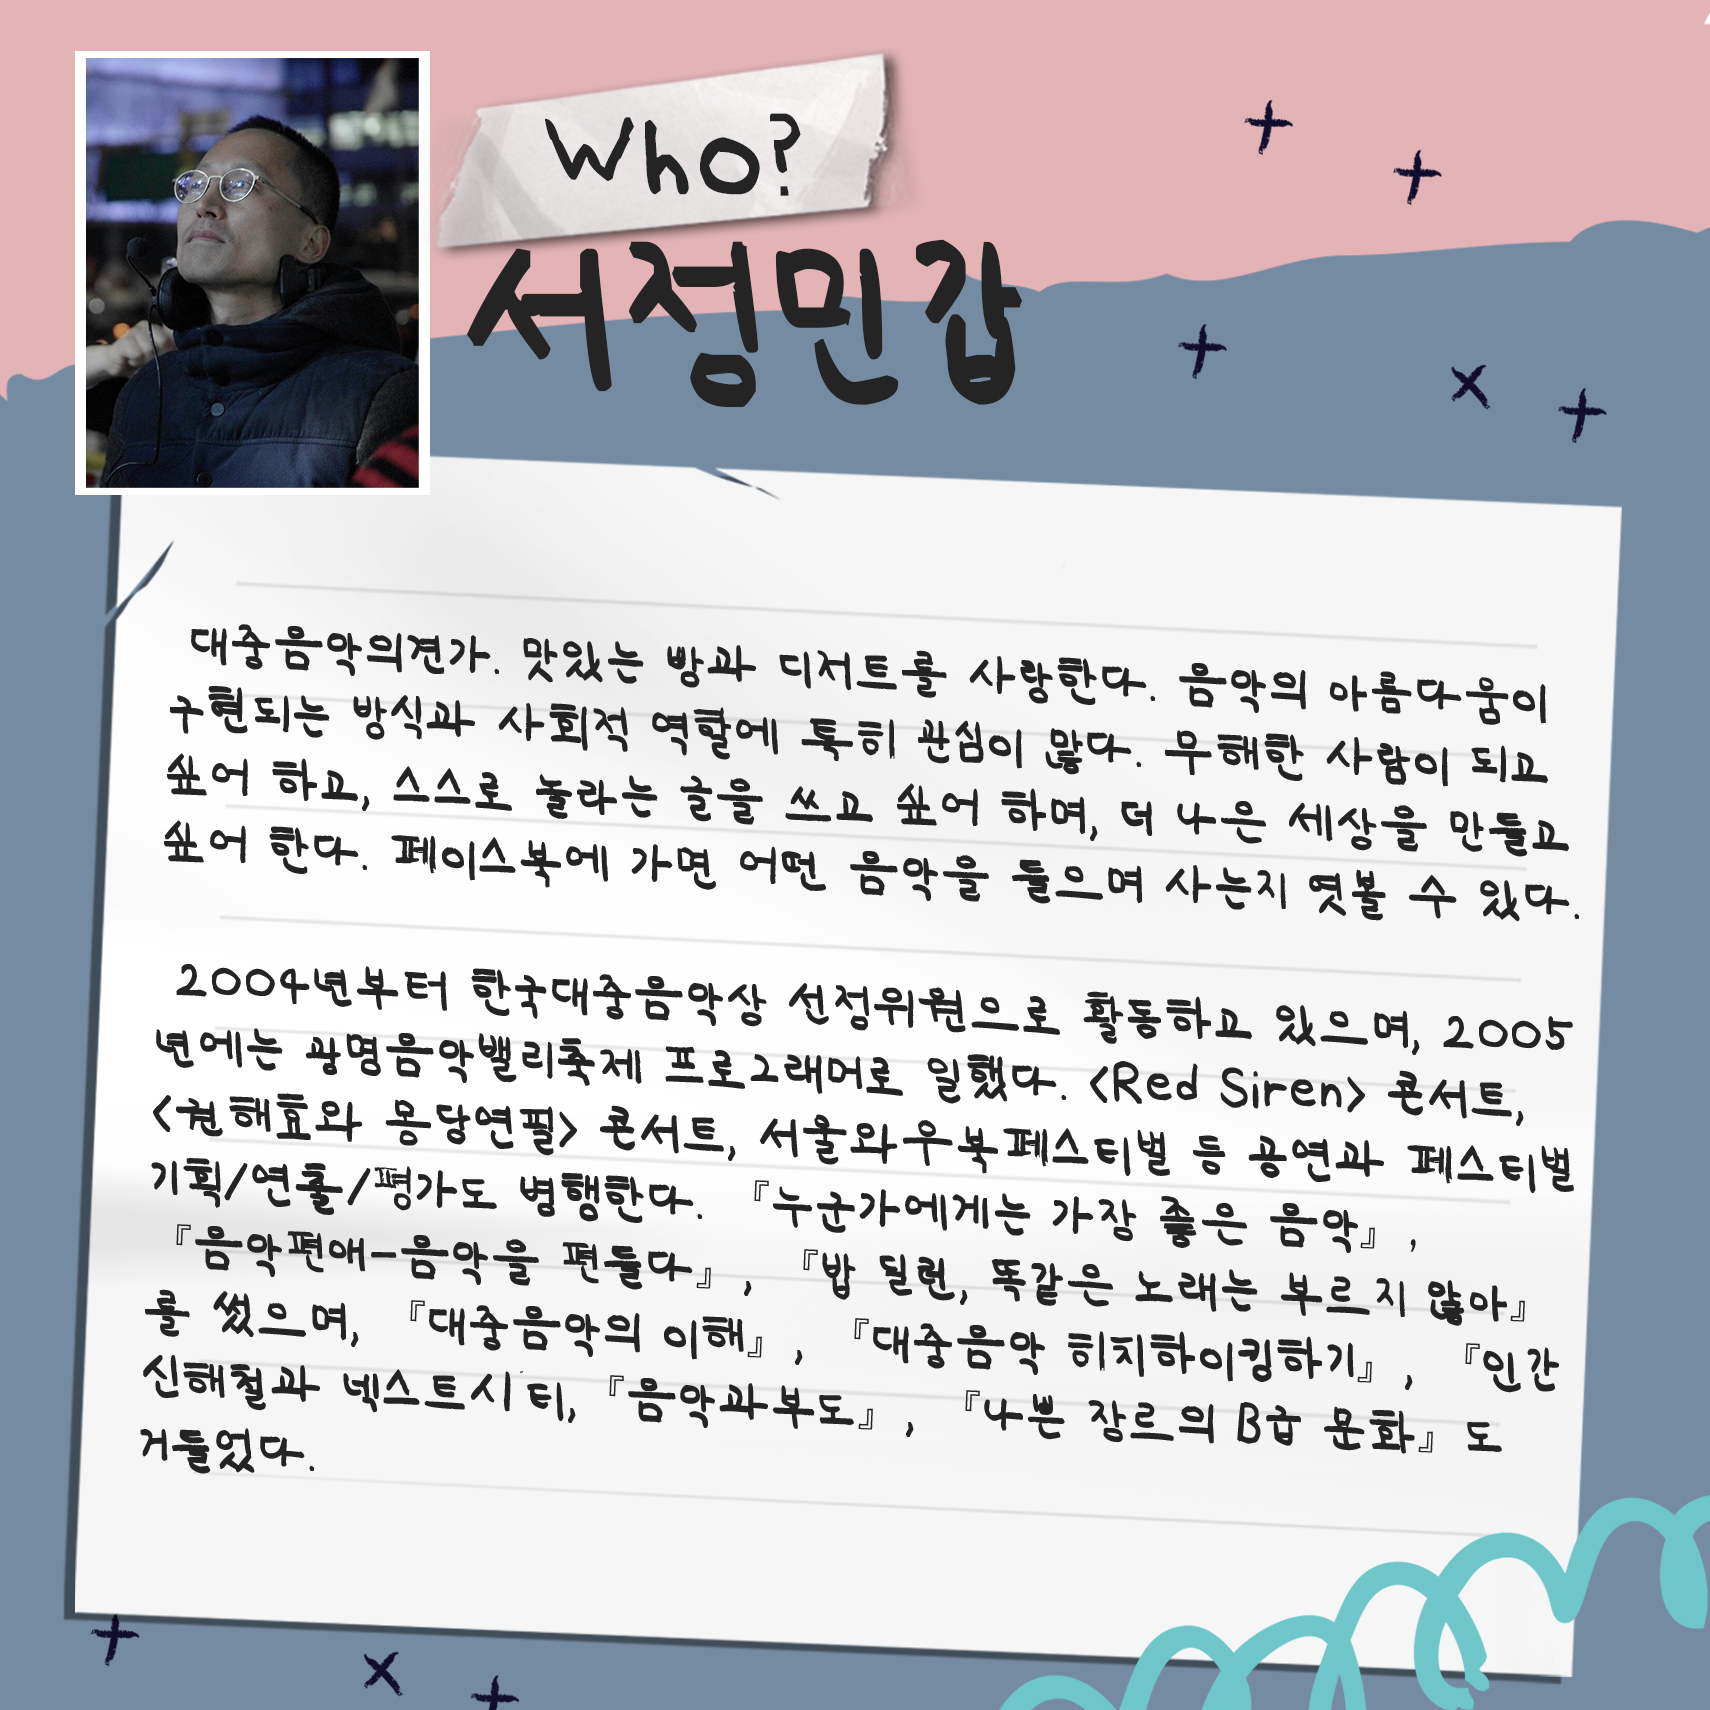 Who?
서정민갑
대중음악의견가. 맛있는 빵과 디저트를 사랑한다. 음악의 아름다움이
구현되는 방식과 사회적 역할에 특히 관심이 많다. 무해한 사람이 되고
싶어 하고, 스스로 놀라는 글을 쓰고 싶어 하며, 더 나은 세상을 만들고
싶어 한다. 페이스북에 가면 어떤 음악을 들으며 사는지 엿볼 수 있다.
2004년부터 한국대중음악상 선정위원으로 활동하고 있으며, 2005
년에는 광명음악밸리축제 프로그래머로 일했다. <Red Siren> 콘서트,
<권해효와 몽당연필> 콘서트, 서울와우북페스티벌 등 공연과 페스티벌
기획/연출/평가도 병행한다. 『누군가에게는 가장 좋은 음악』,
『음악편애-음악을 편들다』, 『밥 딜런, 똑같은 노래는 부르지 않아』
를 썼으며, 『대중음악의 이해』, 『대중음악 히치하이킹하기』, 『인간
신해철과 넥스트시티, 『음악과부도』, 『나쁜 장르의 B급 문화』도
거들었다.